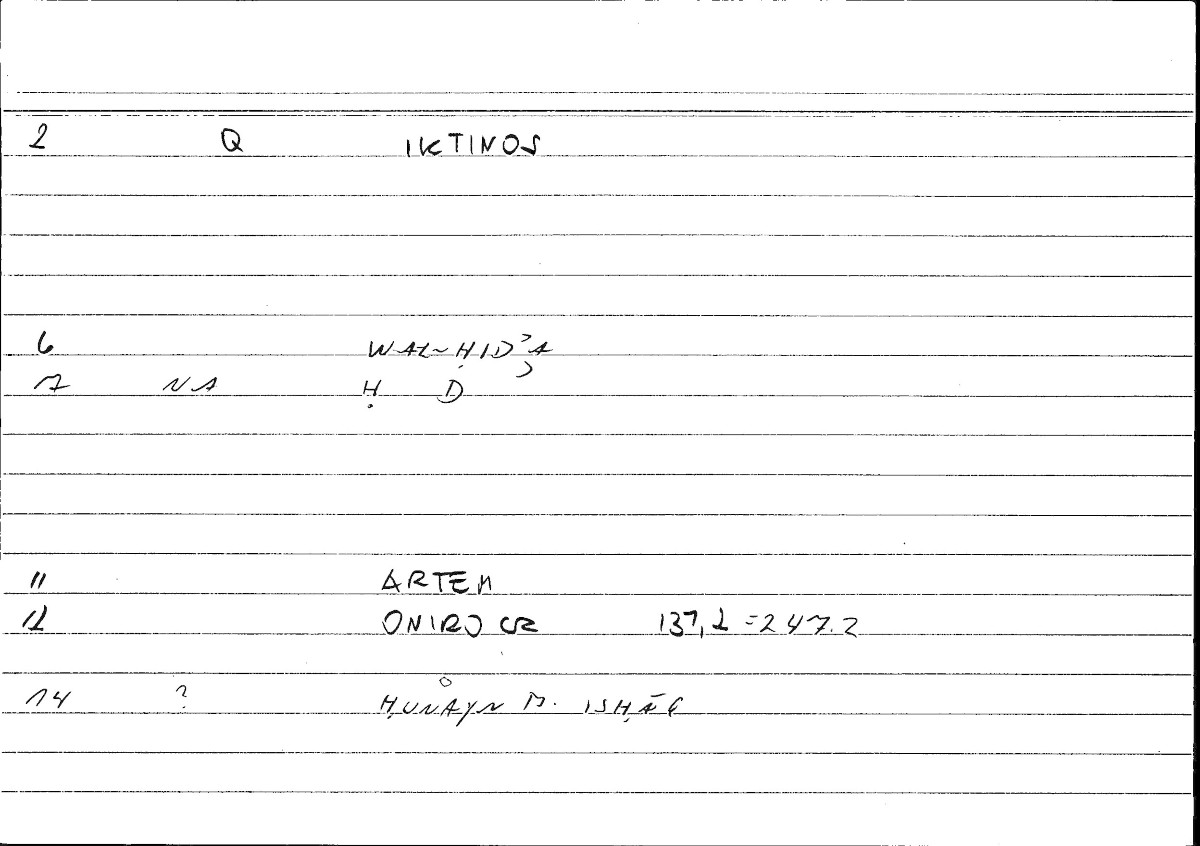 2 Q IKTINOS
6 WAL-ḤIDʾA
17 NA Ḥ D
11 ARTEM
12 ONIROCR 137,2 = 247.2
14 ? ḤUNAYN B. ISḤĀQ